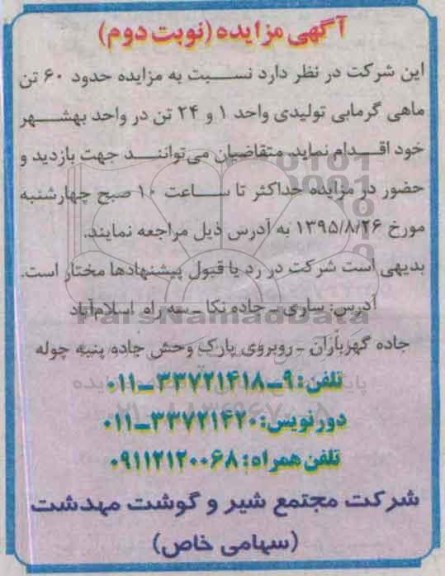 آگهی مزایده (نوبت دوم)
این شرکت در نظر دارد نسبت به مزایده حدود ۶۰ تن
ماهی گرمابی تولیدی واحد ۱ و ۲۴ تن در واحد بهشهر
خود اقدام نماید. متقاضیان می‌توانند جهت بازدید و
حضور در مزایده حداکثر تا ساعت ۱۰ صبح چهارشنبه
مورخ ۱۳۹۵/۸/۲۶ به آدرس ذیل مراجعه نمایند.
بدیهی است شرکت در رد یا قبول پیشنهادها مختار است.
آدرس: ساری - جاده نکا - سه راه اسلام‌آباد
جاده گهرباران - روبروی پارک وحش جاده پنبه چوله
تلفن: ۹-۳۳۷۲۱۴۱۸-۰۱۱
دورنویس: ۳۳۷۲۱۴۲۰-۰۱۱
تلفن همراه: ۰۹۱۱۲۱۲۰۰۶۸
شرکت مجتمع شیر و گوشت مهدشت
(سهامی خاص)
ParsNamadData